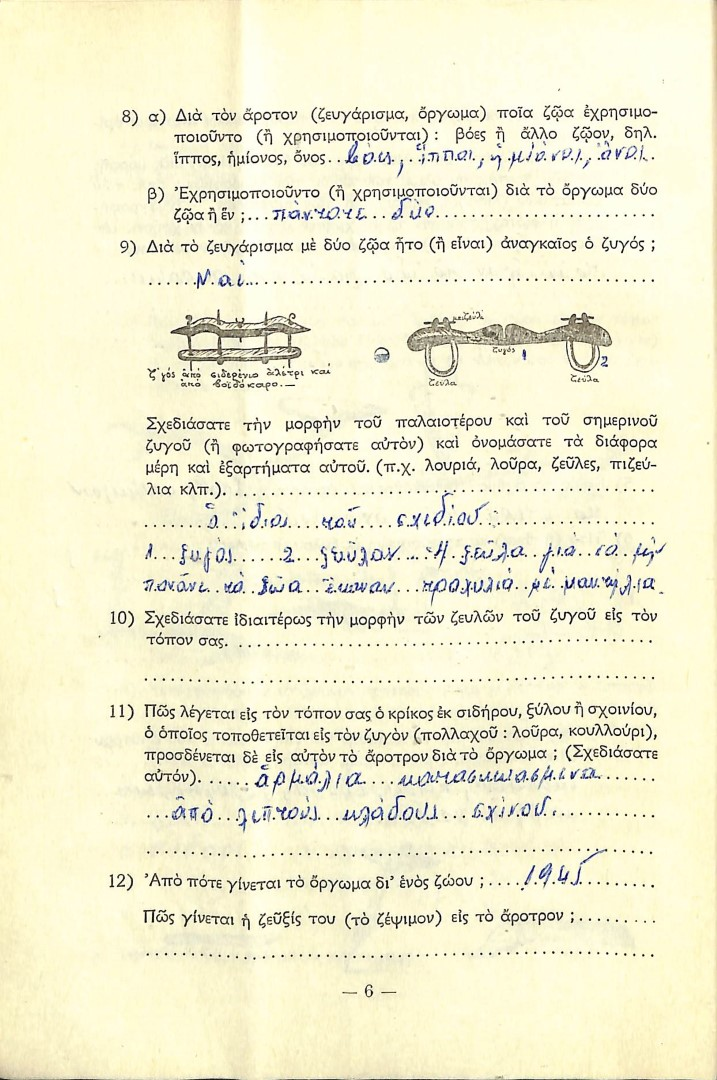 8) α) Διὰ τὸν ἄροτον (ζευγάρισμα, ὄργωμα) ποῖα ζῷα ἐχρησιμο-
ποιοῦντο (ἢ χρησιμοποιοῦνται) : βόες ἢ ἄλλο ζῷον, δηλ.
ἵππος, ἡμίονος, ὄνος.. βόες, ἵπποι, ἡμίονοι, ὄνοι.
β) Ἐχρησιμοποιοῦντο (ἢ χρησιμοποιοῦνται) διὰ τὸ ὄργωμα δύο
ζῷα ἢ ἕν ;... πάντοτε δύο
9) Διὰ τὸ ζευγάρισμα μὲ δύο ζῷα ἦτο (ἢ εἶναι) ἀναγκαῖος ὁ ζυγός ;
Ναί
μπιζεύλι
ζυγός 1
2
ζεύλα
ζεύλα
ζυγός ἀπό σιδερένιο ἀλέτρι καί
ἀπό βοϊδόκαρο.—
Σχεδιάσατε τὴν μορφὴν τοῦ παλαιοτέρου καὶ τοῦ σημερινοῦ
ζυγοῦ (ἢ φωτογραφήσατε αὐτὸν) καὶ ὀνομάσατε τὰ διάφορα
μέρη καὶ ἐξαρτήματα αὐτοῦ. (π.χ. λουριά, λοῦρα, ζεῦλες, πιζεύ-
λια κλπ.).
ὁ ἴδιος τοῦ σχεδίου
1 ζυγὸς 2 ζεῦλαν Ἡ ζεῦλα γιὰ νὰ μὴν
πονᾶνε τὰ ζῶα ἔκαναν τραχυλιὰ μὲ μαντήλια
10) Σχεδιάσατε ἰδιαιτέρως τὴν μορφὴν τῶν ζευλῶν τοῦ ζυγοῦ εἰς τὸν
τόπον σας.
11) Πῶς λέγεται εἰς τὸν τόπον σας ὁ κρίκος ἐκ σιδήρου, ξύλου ἢ σχοινίου,
ὁ ὁποῖος τοποθετεῖται εἰς τὸν ζυγὸν (πολλαχοῦ : λοῦρα, κουλλούρι),
προσδένεται δὲ εἰς αὐτὸν τὸ ἄροτρον διὰ τὸ ὄργωμα ; (Σχεδιάσατε
αὐτόν). ἁρμάλια κατασκευασμένα
ἀπὸ λεπτοὺς κλάδους σχίνου.
12) Ἀπὸ πότε γίνεται τὸ ὄργωμα δι' ἑνὸς ζώου ; 1945
Πῶς γίνεται ἡ ζεῦξίς του (τὸ ζέψιμον) εἰς τὸ ἄροτρον ;
— 6 —